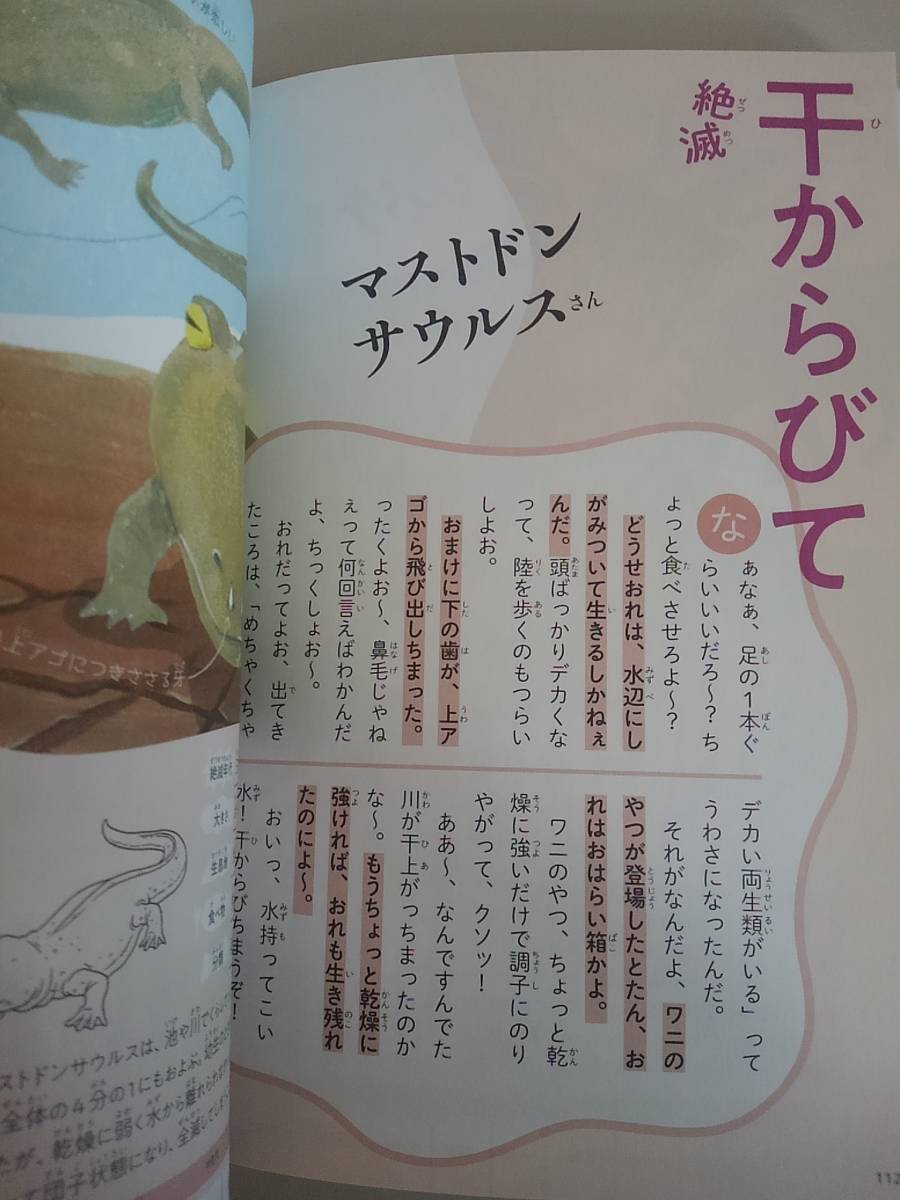 干からびて
絶滅
マストドン
サウルスさん
なあなぁ、足の1本ぐ
らいいいだろ〜?ち
ょっと食べさせろよ〜?
どうせおれは、水辺にし
がみついて生きるしかねぇ
んだ。頭ばっかりデカくな
って、陸を歩くのもつらい
しよお。
おまけに下の歯が、上ア
ゴから飛び出しちまった。
ったくよお〜、鼻毛じゃね
えって何回言えばわかんだ
よ、ちっくしょお〜。
おれだってよお、出てき
たころは、「めちゃくちゃ
デカい両生類がいる」って
うわさになったんだ。
それがなんだよ、ワニの
やつが登場したとたん、お
れはおはらい箱かよ。
ワニのやつ、ちょっと乾
燥に強いだけで調子にのり
やがって、クソッ!
ああ〜、なんですんでた
川が干上がっちまったのか
な〜。もうちょっと乾燥に
強ければ、おれも生き残れ
たのによ〜。
おいっ、水持ってこい
水!干からびちまうぞ!
上アゴにつきささる牙
絶滅年代
大きさ
生息地
食べ物
分類
ストドンサウルスは、池や川でくらし
全体の4分の1にもおよぶ。幼生の
たが、乾燥に弱く水から離れられな
て団子状態になり、全滅してしま